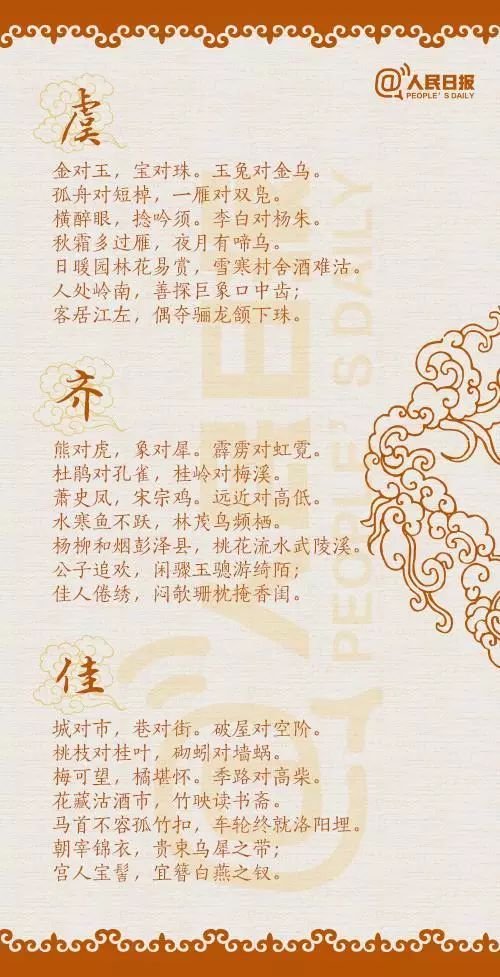 @人民日报
PEOPLE'S DAILY
虞
金对玉，宝对珠。玉兔对金乌。
孤舟对短棹，一雁对双凫。
横醉眼，捻吟须。李白对杨朱。
秋霜多过雁，夜月有啼乌。
日暖园林花易赏，雪寒村舍酒难沽。
人处岭南，善探巨象口中齿；
客居江左，偶夺骊龙颔下珠。
齐
熊对虎，象对犀。霹雳对虹霓。
杜鹃对孔雀，桂岭对梅溪。
萧史凤，宋宗鸡。远近对高低。
水寒鱼不跃，林茂鸟频栖。
杨柳和烟彭泽县，桃花流水武陵溪。
公子追欢，闲骤玉骢游绮陌；
佳人倦绣，闷欹珊枕掩香闺。
佳
城对市，巷对街。破屋对空阶。
桃枝对桂叶，砌蚓对墙蜗。
梅可望，橘堪怀。季路对高柴。
花藏沽酒市，竹映读书斋。
马首不容孤竹扣，车轮终就洛阳埋。
朝宰锦衣，贵束乌犀之带；
宫人宝髻，宜簪白燕之钗。
@人民日报
PEOPLE'S DAILY